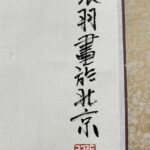 羽畫於北京